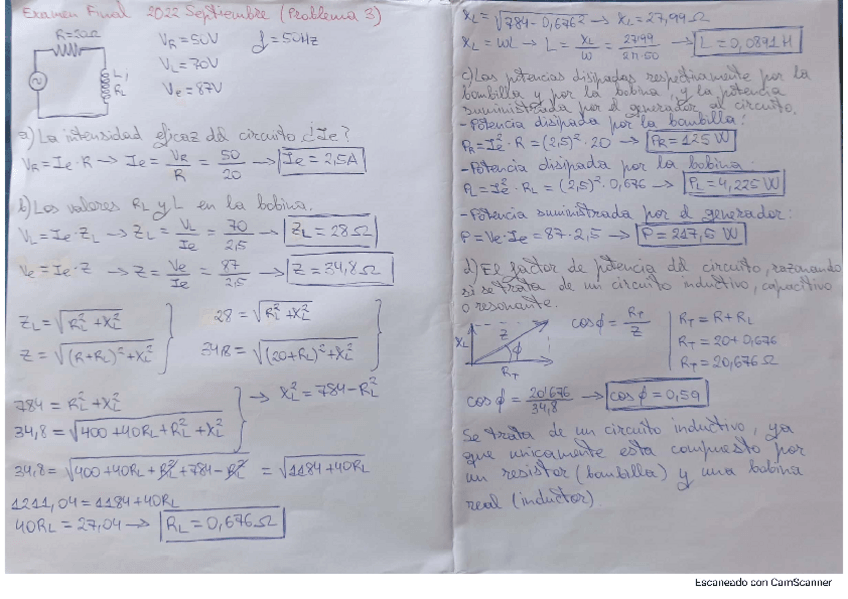 Examen Final 2022 Septiembre (Problema 3)
R=20Ω
L,
RL
VR = 50V
VL = 70V
Ve = 87V
f = 50Hz
a) La intensidad eficaz del circuito ¿Ie?
VR = Ie·R → Ie = VR/R = 50/20 → Ie = 2,5A
b) Los valores RL y L en la bobina.
VL = Ie·ZL → ZL = VL/Ie = 70/2,5 → ZL = 28Ω
Ve = Ie·Z → Z = Ve/Ie = 87/2,5 → Z = 34,8Ω
ZL = √(RL² + XL²)
Z = √((R+RL)² + XL²)
28 = √(RL² + XL²)
34,8 = √((20+RL)² + XL²)
784 = RL² + XL²
→ XL² = 784 - RL²
34,8 = √(400 + 40RL + RL² + XL²)
34,8 = √(400 + 40RL + RL² + 784 - RL²) = √(1184 + 40RL)
1211,04 = 1184 + 40RL
40RL = 27,04 → RL = 0,676Ω
XL = √(784 - 0,676²) → XL = 27,99Ω
XL = WL → L = XL/W = 27'99/2π·50 → L = 0,0891H
c) Las potencias disipadas respectivamente por la
bombilla y por la bobina, y la potencia
suministrada por el generador al circuito.
- Potencia disipada por la bombilla:
PR = Ie²·R = (2,5)²·20 → PR = 125W
- Potencia disipada por la bobina:
PL = Ie²·RL = (2,5)²·0,676 → PL = 4,225W
- Potencia suministrada por el generador:
P = Ve·Ie = 87·2,5 → P = 217,5W
d) El factor de potencia del circuito, razonando
si se trata de un circuito inductivo, capacitivo
o resonante.
XL
Z
ϕ
RT
cosϕ = RT/Z
RT = R + RL
RT = 20 + 0,676
RT = 20,676Ω
cosϕ = 20'676/34,8 → cosϕ = 0,59
Se trata de un circuito inductivo, ya
que unicamente esta compuesto por
un resistor (bombilla) y una bobina
real (inductor).
Escaneado con CamScanner